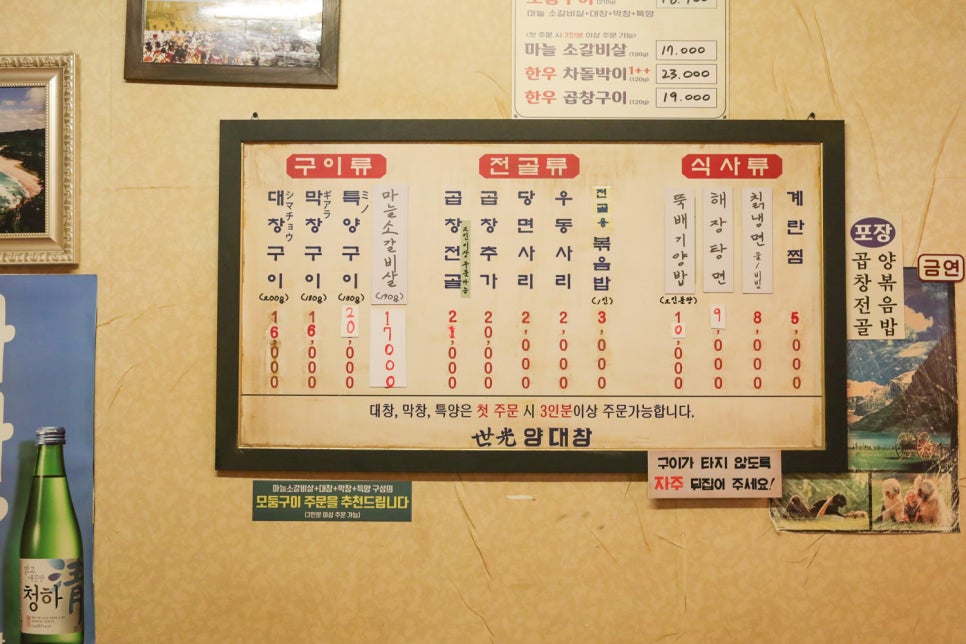 모둠구이 (210g)
마늘 소갈비살+대창+막창+특양
<첫 주문 시 2인분 이상 주문 가능>
마늘 소갈비살 (190g) 17.000
한우 차돌박이 1++ (120g) 23.000
한우 곱창구이 (120g) 19.000
구이류
대창구이 シマチョウ (200g) 16,000
막창구이 ギアラ (180g) 16,000
특양구이 ミノ (180g) 20,000
마늘소갈비살 (190g) 17000
전골류
곱창전골 2인이상 주문가능 21,000
곱창추가 20,000
당면사리 2,000
우동사리 2,000
전골용 볶음밥 (1인) 3,000
식사류
뚝배기양밥 10,000
해장탕면 9,000
칡냉면 물/빔 8,000
계란찜 5,000
대창, 막창, 특양은 첫 주문 시 3인분이상 주문가능합니다.
世光 양대창
포장
양볶음밥
곱창전골
금연
구이가 타지 않도록
자주 뒤집어 주세요!
마늘소갈비살+대창+막창+특양 구성의
모둠구이 주문을 추천드립니다
(3인분 이상 주문 가능)
맑고
깨끗한
청하
淸